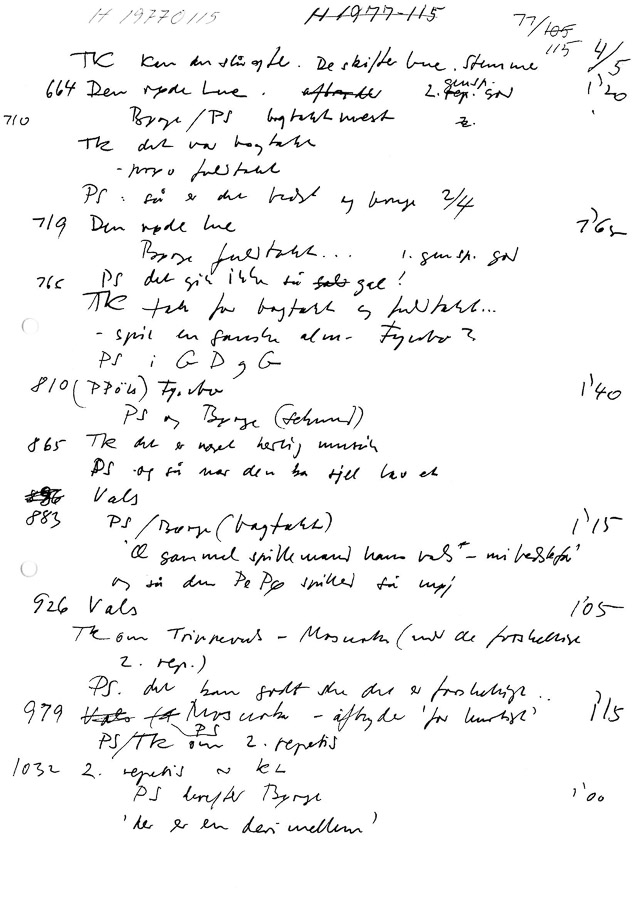 H 19770115 H 1977-115 77/105
115 4/5
TK Kan du slå efter. De skifter lue. Stemme
664 Den røde lue. 2. gensp. god 1'20
710 Børge/PS bagtakt mest 2.
TK det var bagtakt
- prøv fuldtakt
PS: så er det bedst og bruge 2/4
719 Den røde lue 1'65
Børge fuldtakt... 1. gensp. god
765 PS det gik ikke så gal!
TK tak for bagtakt og fuldtakt...
- spil en ganske alm-
PS i G D og G
810 (PPØ) 1'40
PS og Børge (sekund)
865 TK det er noget herlig musik
PS og så når den ka spill lav et
896 Vals
883 PS/Børge (bagtakt) 1'15
'Et gammel spillemand hans vals" - mi bedstefar'
og så den Pe Pø spilled så møj
926 Vals 1'05
TK om Trinnevals - Masurka (med de forskellige
2. rep.)
PS. det kan godt ske det er forskelligt..
979 Vals Masurka - afbryde 'for hurtigt' 1'15
PS
PS/TK om 2. repetis
1032 2. repetis ~ kL
PS derefter Børge 1'00
'der er en deri mellem'